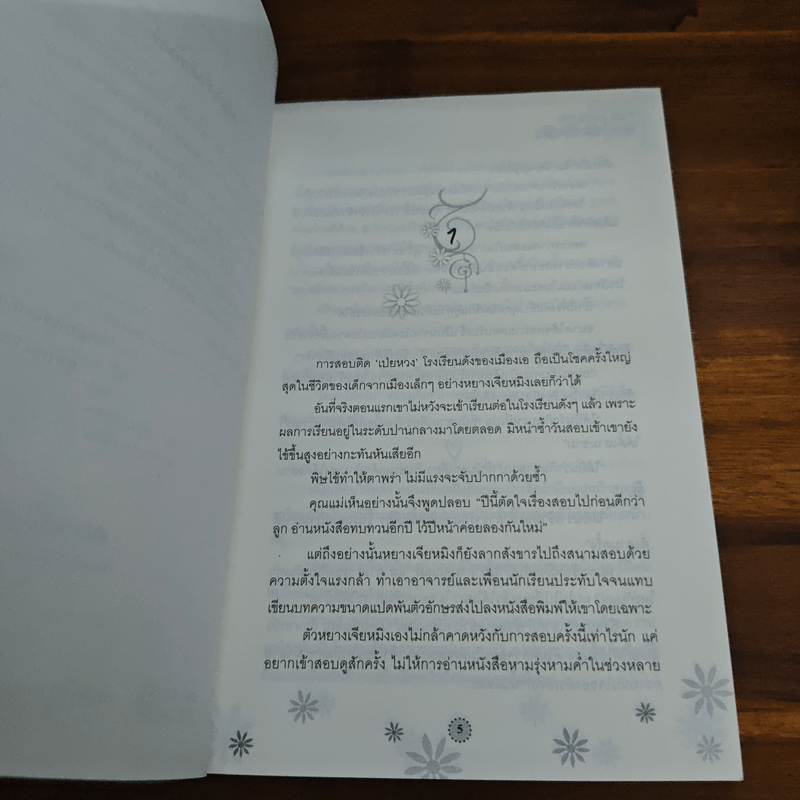 1
การสอบติด ‘เป่ยหวง’ โรงเรียนดังของเมืองเอ ถือเป็นโชคครั้งใหญ่
สุดในชีวิตของเด็กจากเมืองเล็กๆ อย่างหยางเจียหมิงเลยก็ว่าได้
อันที่จริงตอนแรกเขาไม่หวังจะเข้าเรียนต่อในโรงเรียนดังๆ แล้ว เพราะ
ผลการเรียนอยู่ในระดับปานกลางมาโดยตลอด มิหนำซ้ำวันสอบเข้าเขายัง
ไข้ขึ้นสูงอย่างกะทันหันเสียอีก
พิษไข้ทำให้ตาพร่า ไม่มีแรงจะจับปากกาด้วยซ้ำ
คุณแม่เห็นอย่างนั้นจึงพูดปลอบ “ปีนี้ตัดใจเรื่องสอบไปก่อนดีกว่า
ลูก อ่านหนังสือทบทวนอีกปี ไว้ปีหน้าค่อยลองกันใหม่”
แต่ถึงอย่างนั้นหยางเจียหมิงก็ยังลากสังขารไปถึงสนามสอบด้วย
ความตั้งใจแรงกล้า ทำเอาอาจารย์และเพื่อนนักเรียนประทับใจจนแทบ
เขียนบทความขนาดแปดพันตัวอักษรส่งไปลงหนังสือพิมพ์ให้เขาโดยเฉพาะ
ตัวหยางเจียหมิงเองไม่กล้าคาดหวังกับการสอบครั้งนี้เท่าไรนัก แค่
อยากเข้าสอบดูสักครั้ง ไม่ให้การอ่านหนังสือหามรุ่งหามค่ำในช่วงหลาย
5